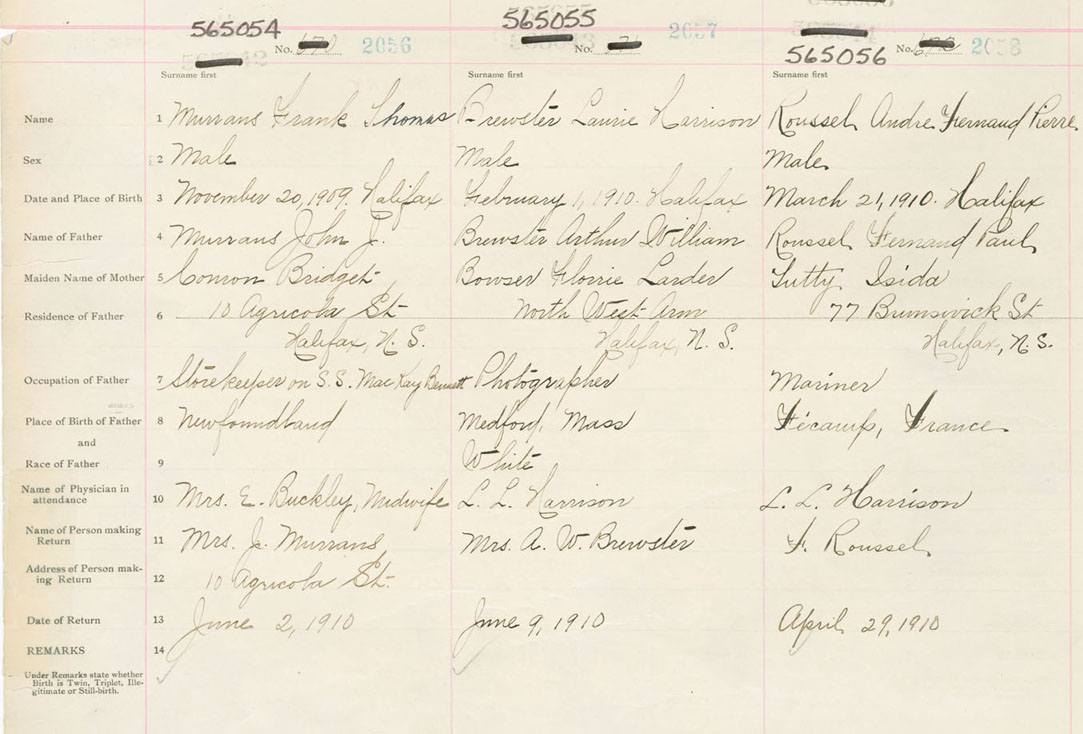 565054 565055
No. 2056 No. 2057 No. 2058
565056
Surname first Surname first Surname first
Name 1 Murrans Frank Thomas Brewster Laurie Harrison Roussel Andre Fernaud Pierre
Sex 2 Male Male Male
Date and Place of Birth 3 November 20, 1909. Halifax February 1, 1910. Halifax March 21, 1910. Halifax
Name of Father 4 Murrans John J. Brewster Arthur William Roussel Fernaud Paul
Maiden Name of Mother 5 Conron Bridget Bowser Florrie Larder Tutty Isida
Residence of Father 6 10 Agricola St North West Arm 77 Brunswick St
Halifax, N.S. Halifax, N.S. Halifax, N.S.
Occupation of Father 7 Storekeeper on S.S. MacKay Bennett Photographer Mariner
Place of Birth of Father 8 Newfoundland Medford, Mass Fécamp, France
and
Race of Father 9 White
Name of Physician in
attendance 10 Mrs. E. Buckley, Midwife L. L. Harrison L. L. Harrison
Name of Person making
Return 11 Mrs. J. Murrans Mrs. A. W. Brewster F. Roussel
Address of Person mak-
ing Return 12 10 Agricola St.
Date of Return 13 June 2, 1910 June 9, 1910 April 29, 1910
REMARKS 14
Under Remarks state whether
Birth is Twin, Triplet, Ille-
gitimate or Still-birth.